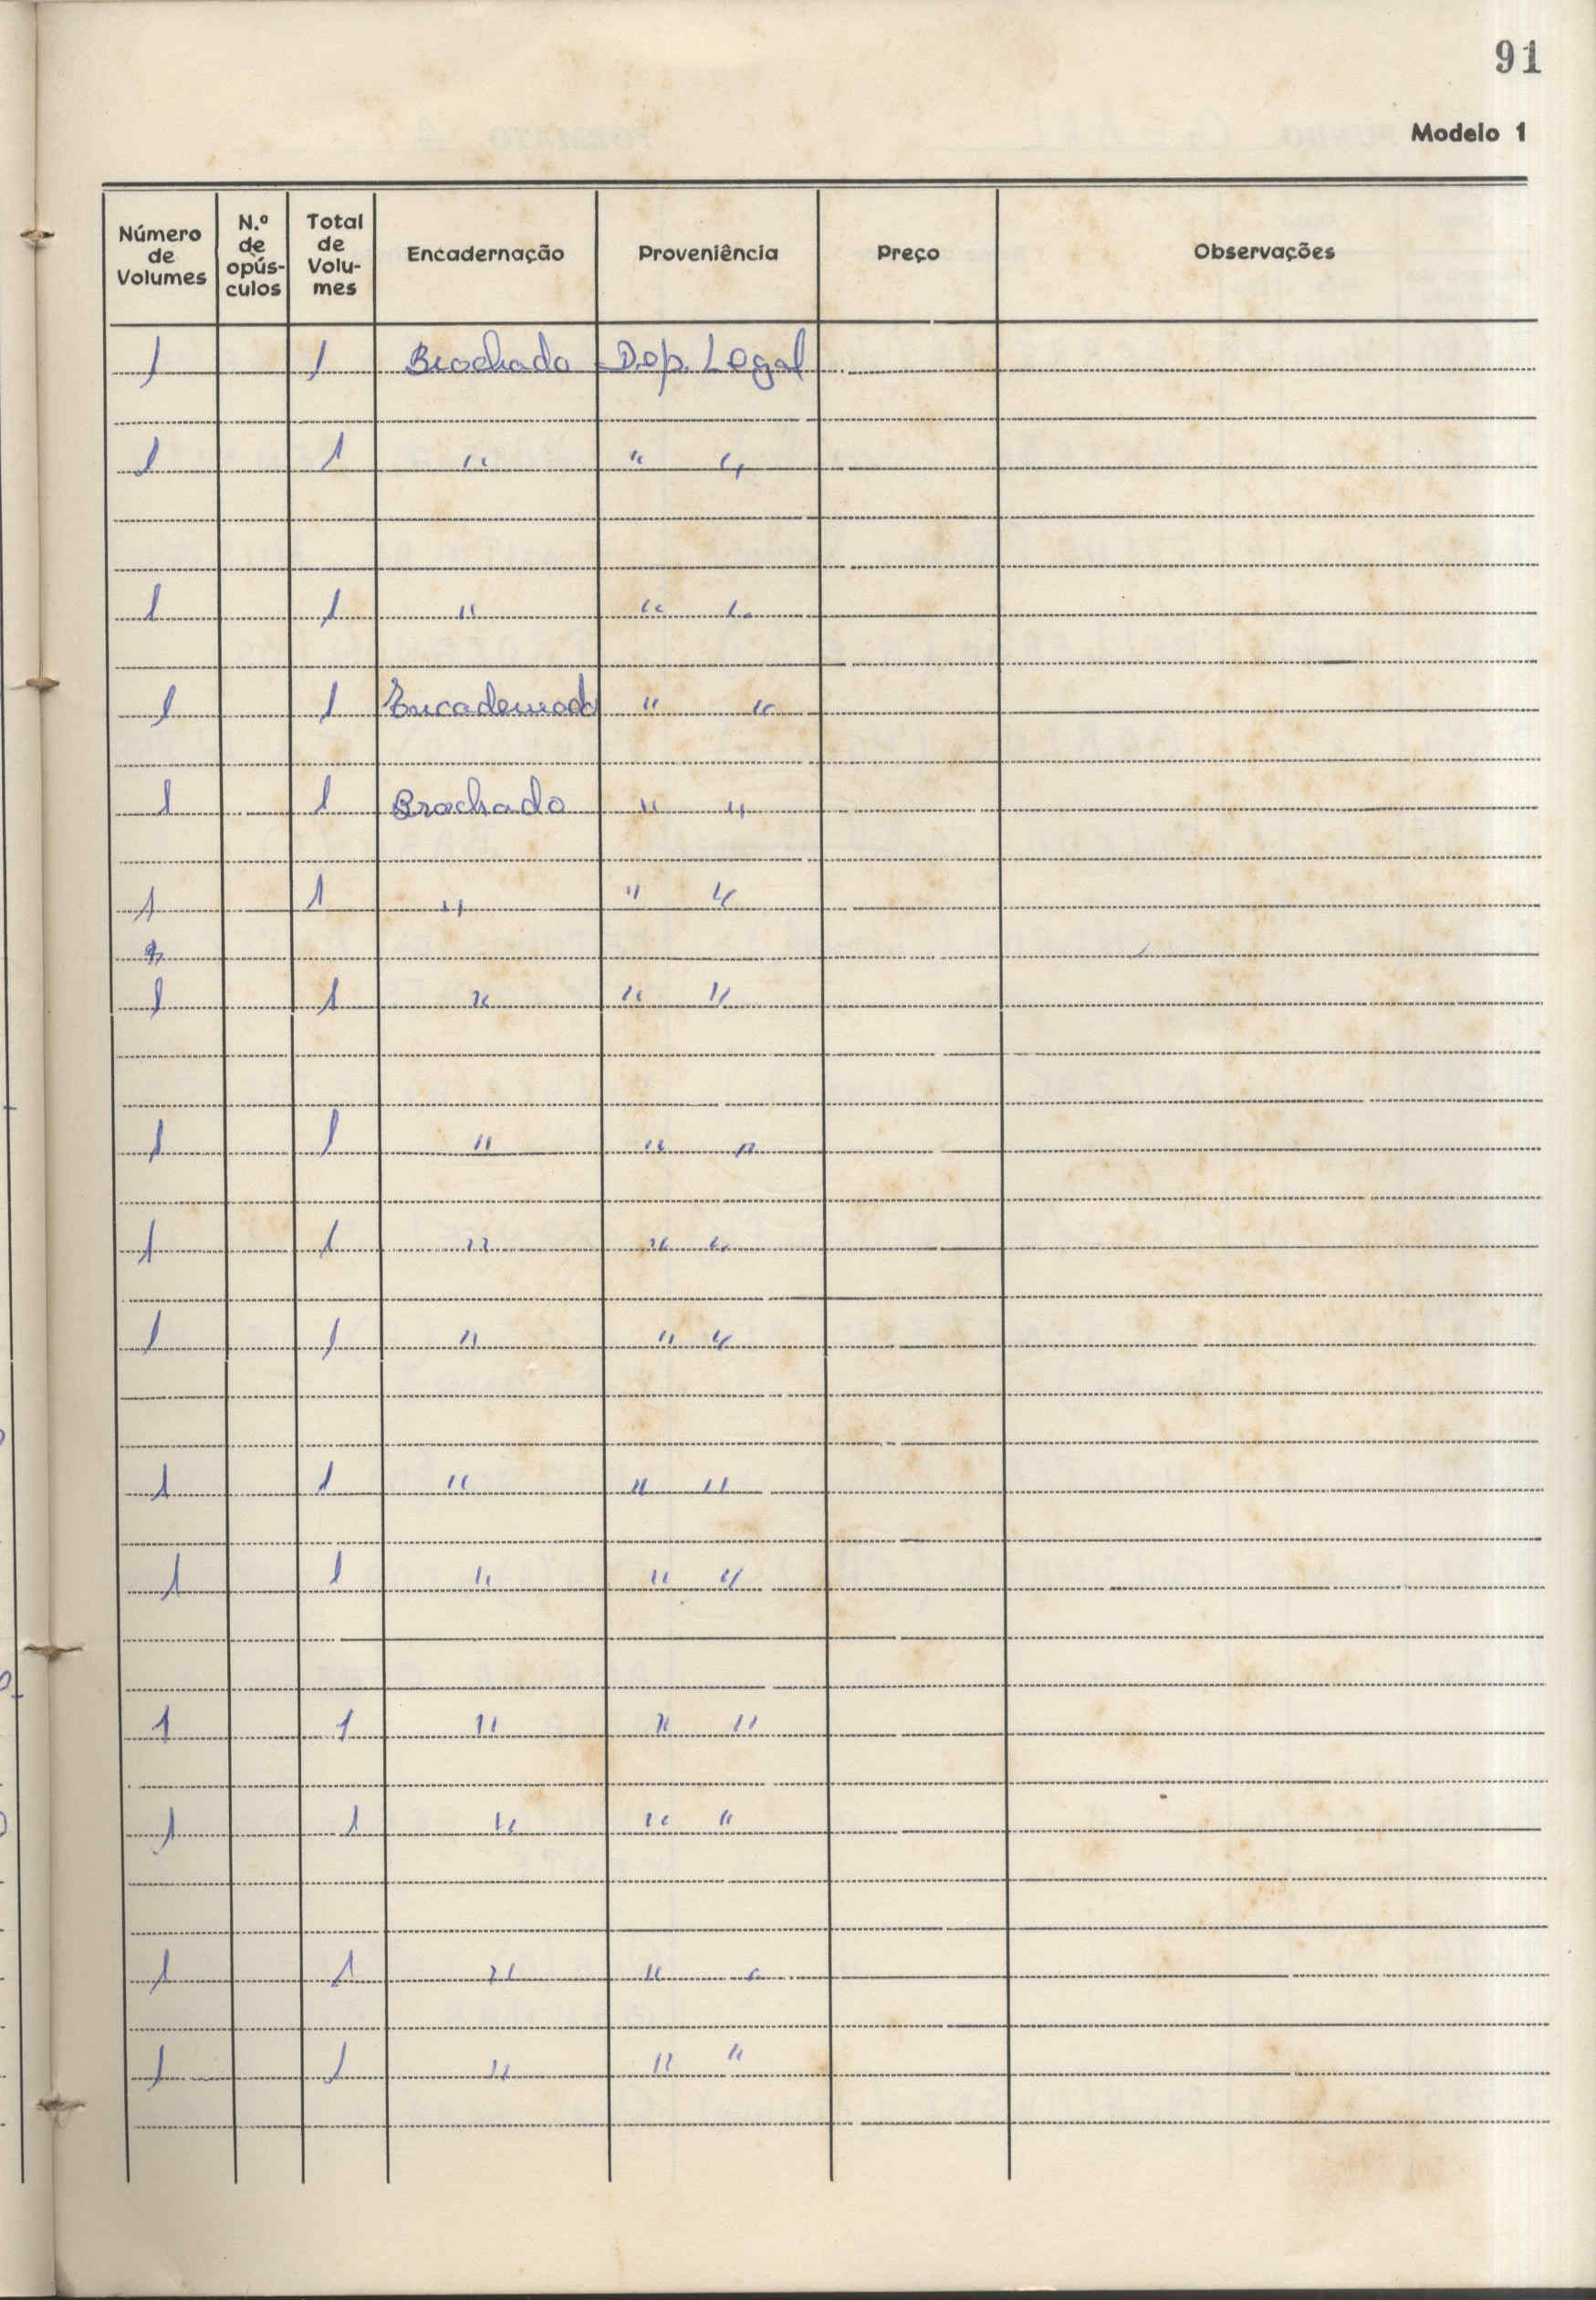 91
Modelo 1
Número de Volumes N.º de opús-culos Total de Volu-mes Encadernação Proveniência Preço Observações
1 1 Brochado Dep. Legal
1 1 " " "
1 1 " " "
1 1 Encadernado " "
1 1 Brochado " "
1 1 " " "
1 1 " " "
1 1 " " "
1 1 " " "
1 1 " " "
1 1 " " "
1 1 " " "
1 1 " " "
1 1 " " "
1 1 " " "
1 1 " " "